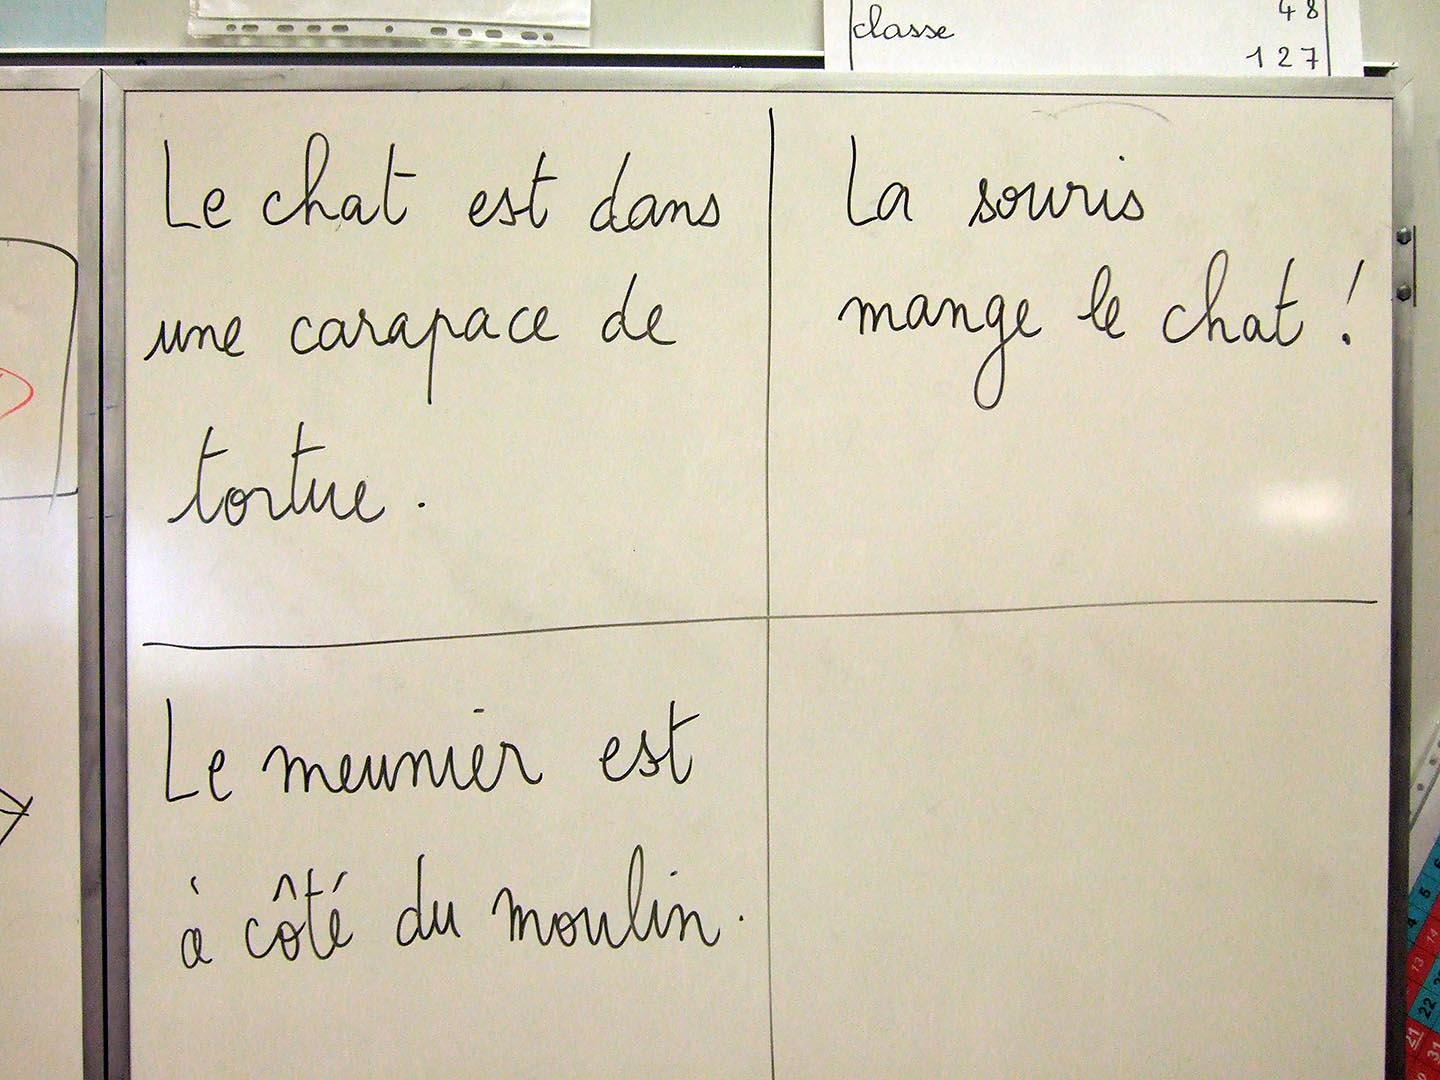 classe 48
127
Le chat est dans
une carapace de
tortue.
La souris
mange le chat !
Le meunier est
à côté du moulin.
4 5 6
13 14
22
21 31